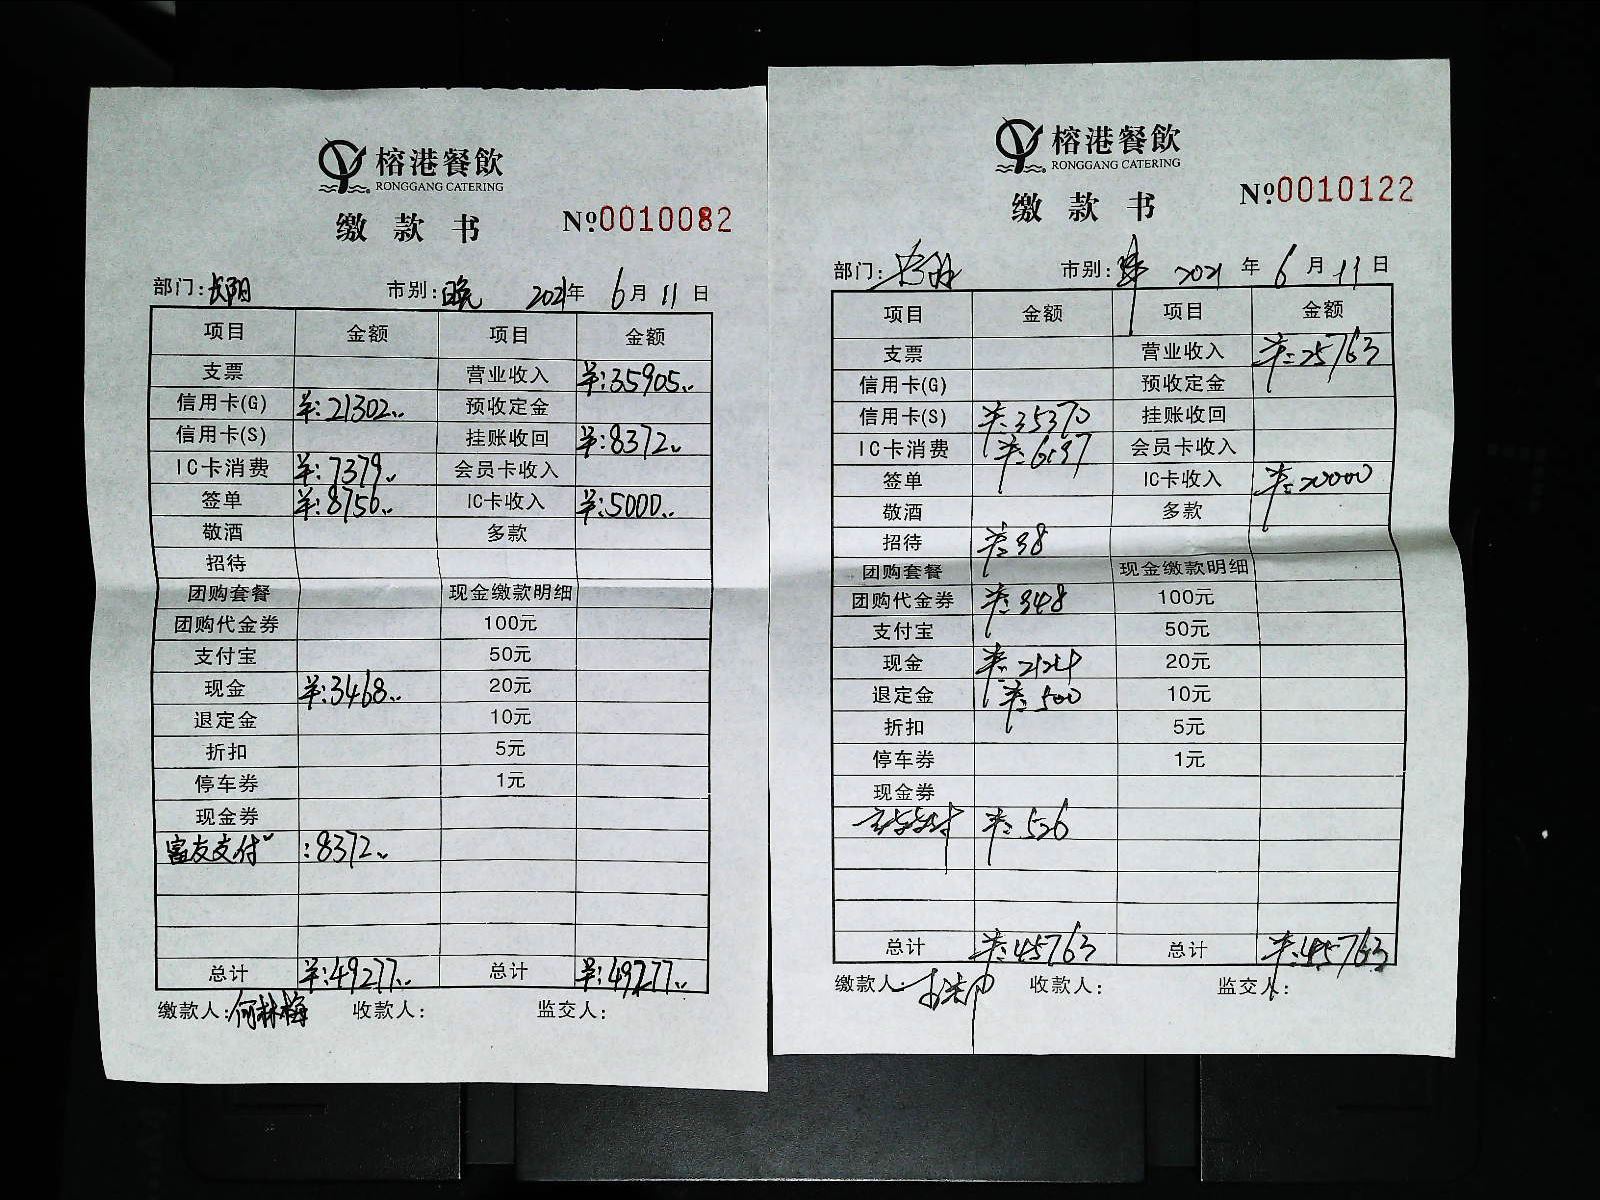 榕港餐飲
RONGGANG CATERING
缴款书 №0010082
部门:长阳 市别:晚 2021年 6月 11日
项目 金额 项目 金额
支票 营业收入 ¥:35905..
信用卡(G) ¥:21302.. 预收定金
信用卡(S) 挂账收回 ¥:8372..
IC卡消费 ¥:7379.. 会员卡收入
签单 ¥:8756.. IC卡收入 ¥:5000..
敬酒 多款
招待
团购套餐 现金缴款明细
团购代金券 100元
支付宝 50元
现金 ¥:3468.. 20元
退定金 10元
折扣 5元
停车券 1元
现金券
富友支付 :8372..
总计 ¥:49277.. 总计 ¥:49277..
缴款人:何林梅 收款人: 监交人:
榕港餐飲
RONGGANG CATERING
缴款书 №0010122
部门: 市别: 2021年 6月 11日
项目 金额 项目 金额
支票 营业收入 ¥:25763
信用卡(G) 预收定金
信用卡(S) ¥:35370 挂账收回
IC卡消费 会员卡收入
签单 IC卡收入 ¥:20000
敬酒 多款
招待 ¥:38
团购套餐 现金缴款明细
团购代金券 ¥:348 100元
支付宝 50元
现金 20元
退定金 ¥:500 10元
折扣 5元
停车券 1元
现金券
¥:526
总计 ¥:45763 总计 ¥:45763
缴款人: 收款人: 监交人: